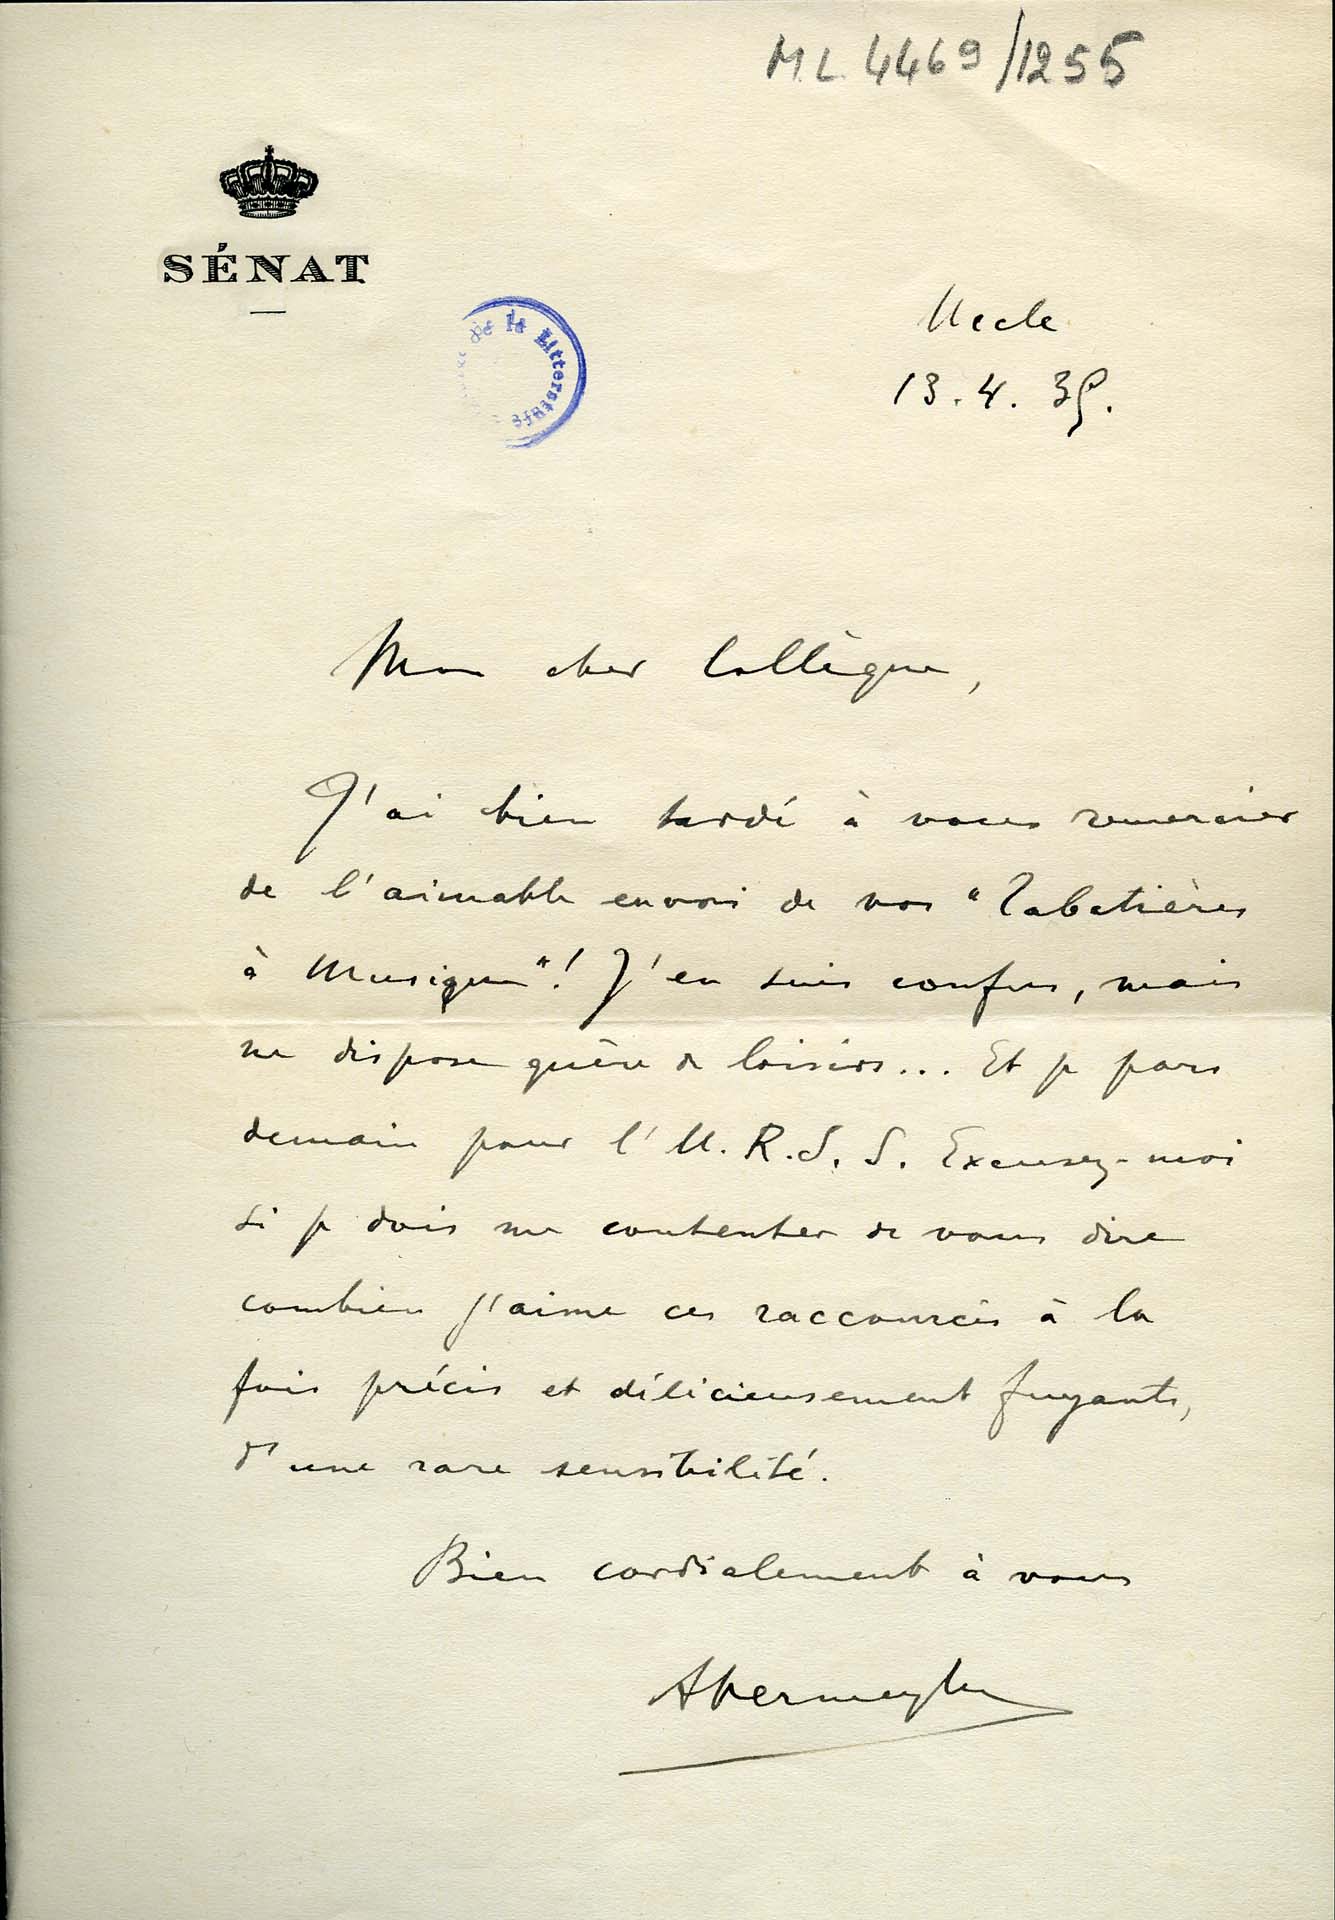 M.L. 4469/1255
SÉNAT
de la Littérature
Uccle
13.4.35.
Mon cher Collègue,
J'ai bien tardé à vous remercier
de l'aimable envoi de vos "Tabatières
à Musique"! J'en suis confus, mais
ne dispose guère de loisirs... Et je pars
demain pour l'U.R.S.S. Excusez-moi
si je dois me contenter de vous dire
combien j'aime ces raccourcis à la
fois précis et délicieusement fuyants,
d'une rare sensibilité.
Bien cordialement à vous
AVermeylen